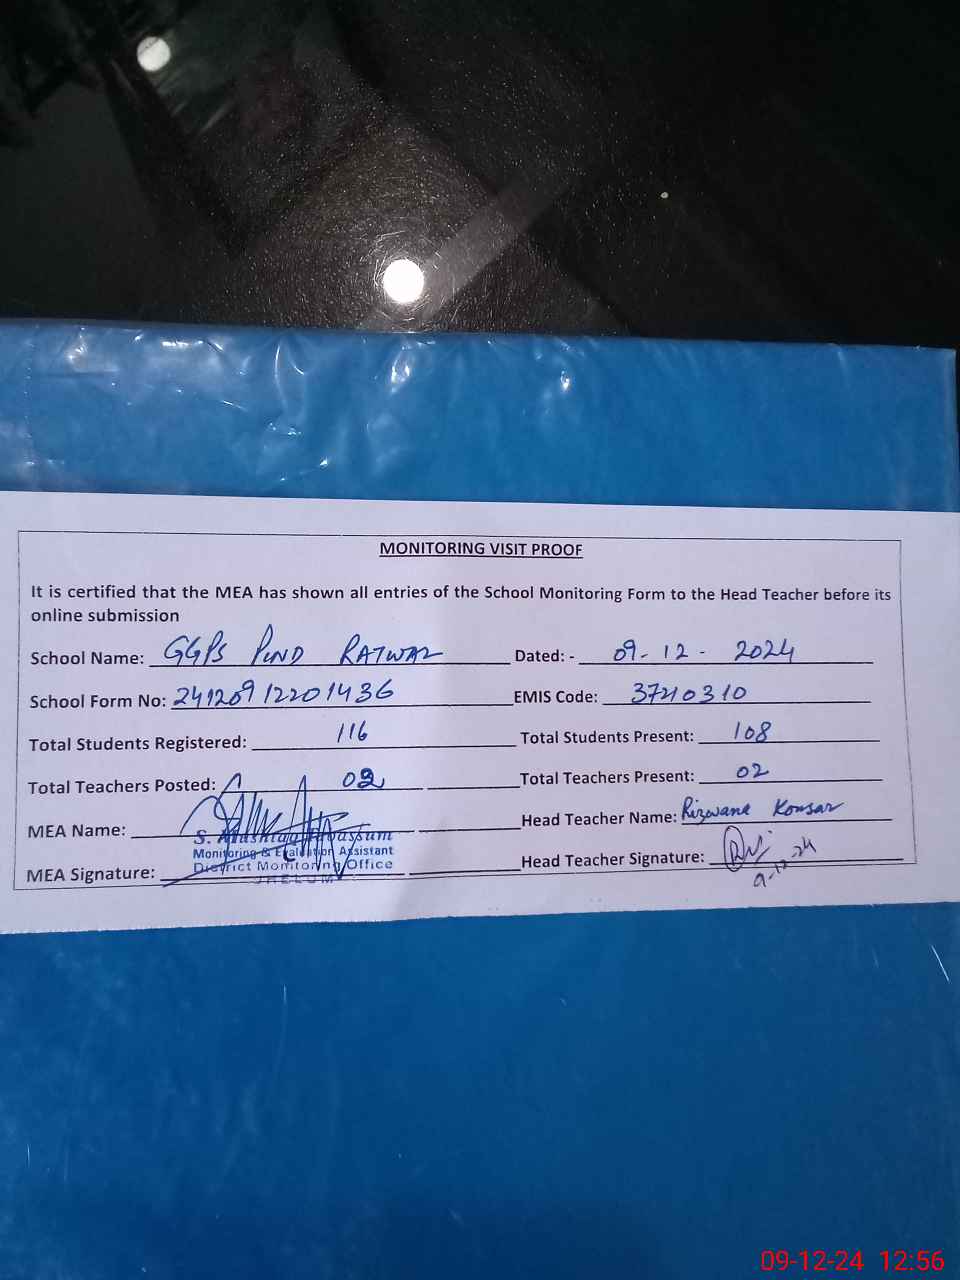 MONITORING VISIT PROOF
It is certified that the MEA has shown all entries of the School Monitoring Form to the Head Teacher before its
online submission
School Name: GGPS PIND RATWAL Dated: - 09-12-2024
School Form No: 24120912201436 EMIS Code: 37210310
Total Students Registered: 116 Total Students Present: 108
Total Teachers Posted: 02 Total Teachers Present: 02
MEA Name: Head Teacher Name: Rizwana Kousar
S. Tabassum
Monitoring & Evaluation Assistant
District Monitoring Office
JHELUM
MEA Signature: Head Teacher Signature:
9-12-24
09-12-24 12:56